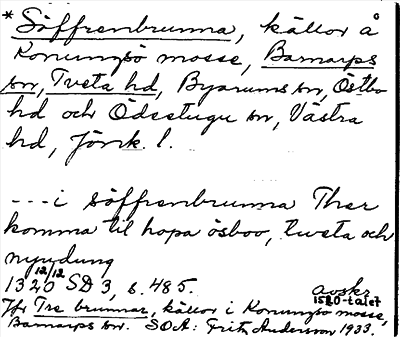 * Söffrenbrunna, källor å
Konungsö mosse, Barnarps
sn, Tveta hd, Byarums sn, Östbo
hd och Ödestugu sn, Västra
hd, Jönk. l.
---i söffrenbrunna Ther
komma til hopa ösboo, tweta och
nyudung
12/12
1320 SD 3, s. 485.
avskr.
1520-talet
Jfr Tre brunnar, källor i Konungsö mosse,
Barnarps sn. SOA: Fritz Andersson 1933.